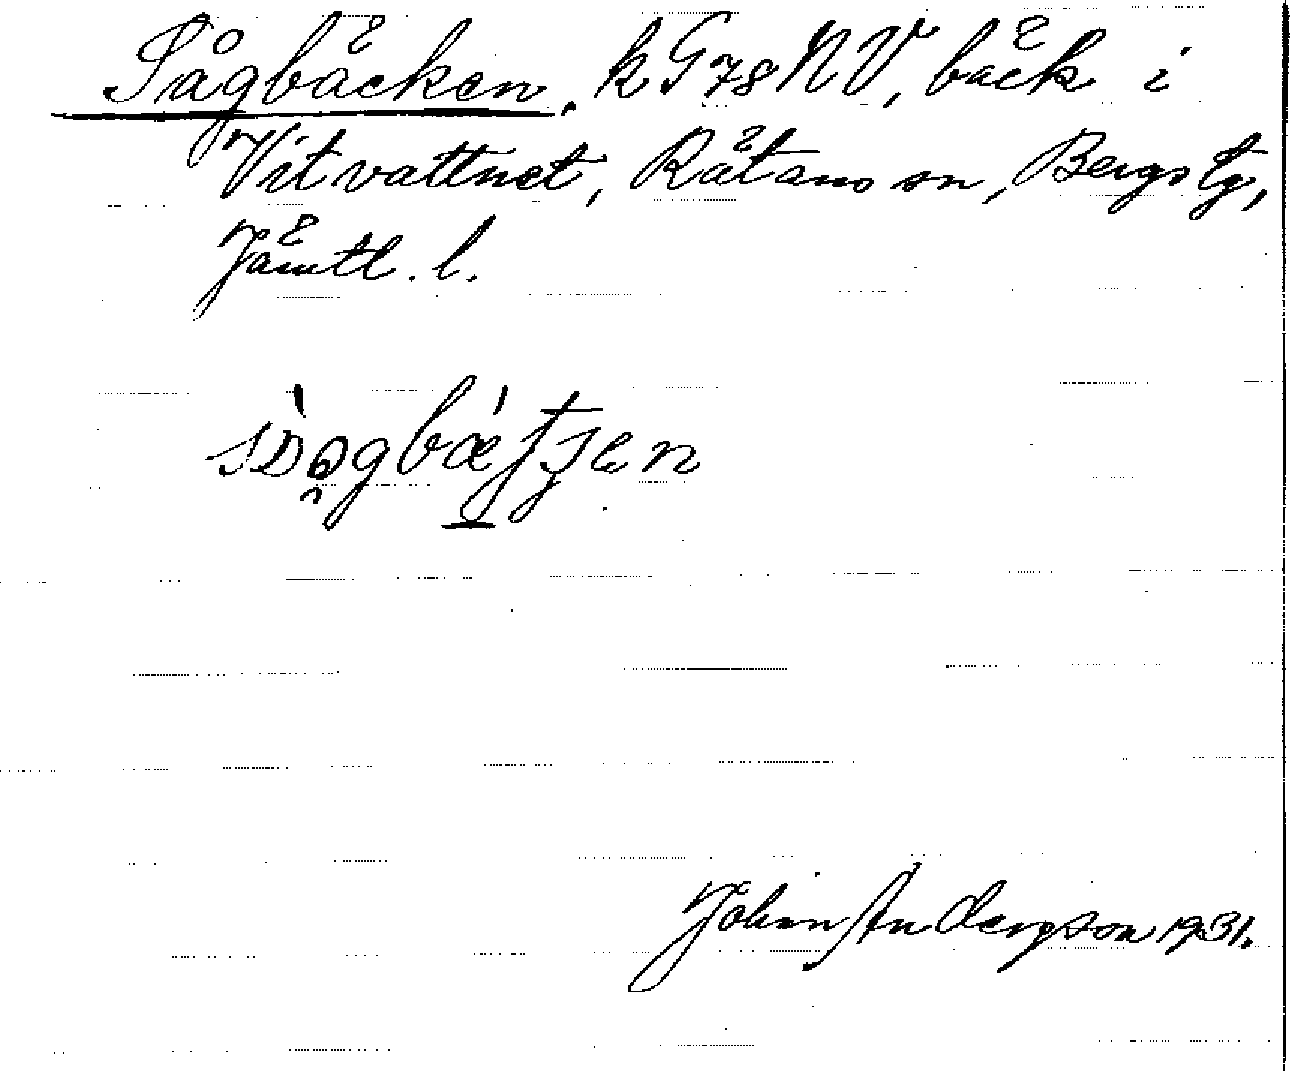 Sågbäcken. k G78NV, bäck i
Vitvattnet, Rätans sn, Bergs tg,
Jämtl. l.
John Andersson 1931.